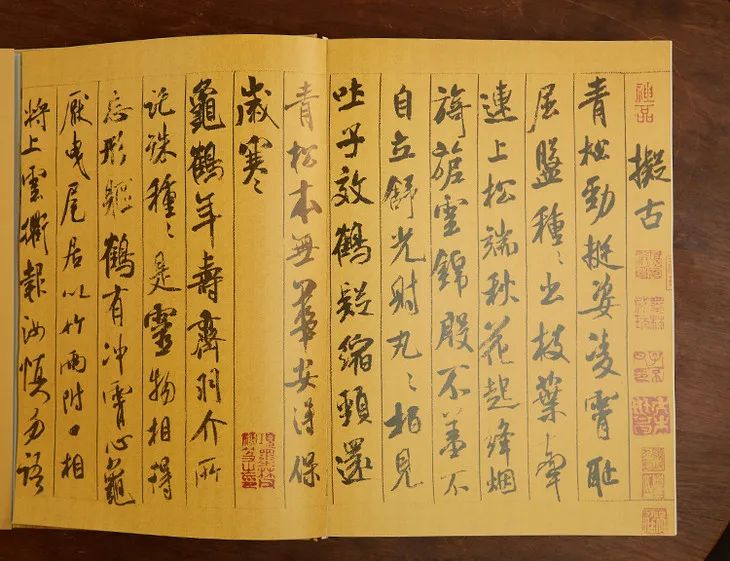 神品
擬古
青松勁挺姿凌霄恥
屈盤種〻出枝葉牽
連上松端秋花起絳烟
旖旎雲錦殷不羞不
自立舒光射丸〻柏見
吐子效鶴疑縮頸還
青松本無華安得保
歲寒
龜鶴年壽齊羽介所
託殊種〻是靈物相得
忘形軀鶴有沖霄心龜
厭曳尾居以竹兩附口相
將上雲衢報汝慎勿語